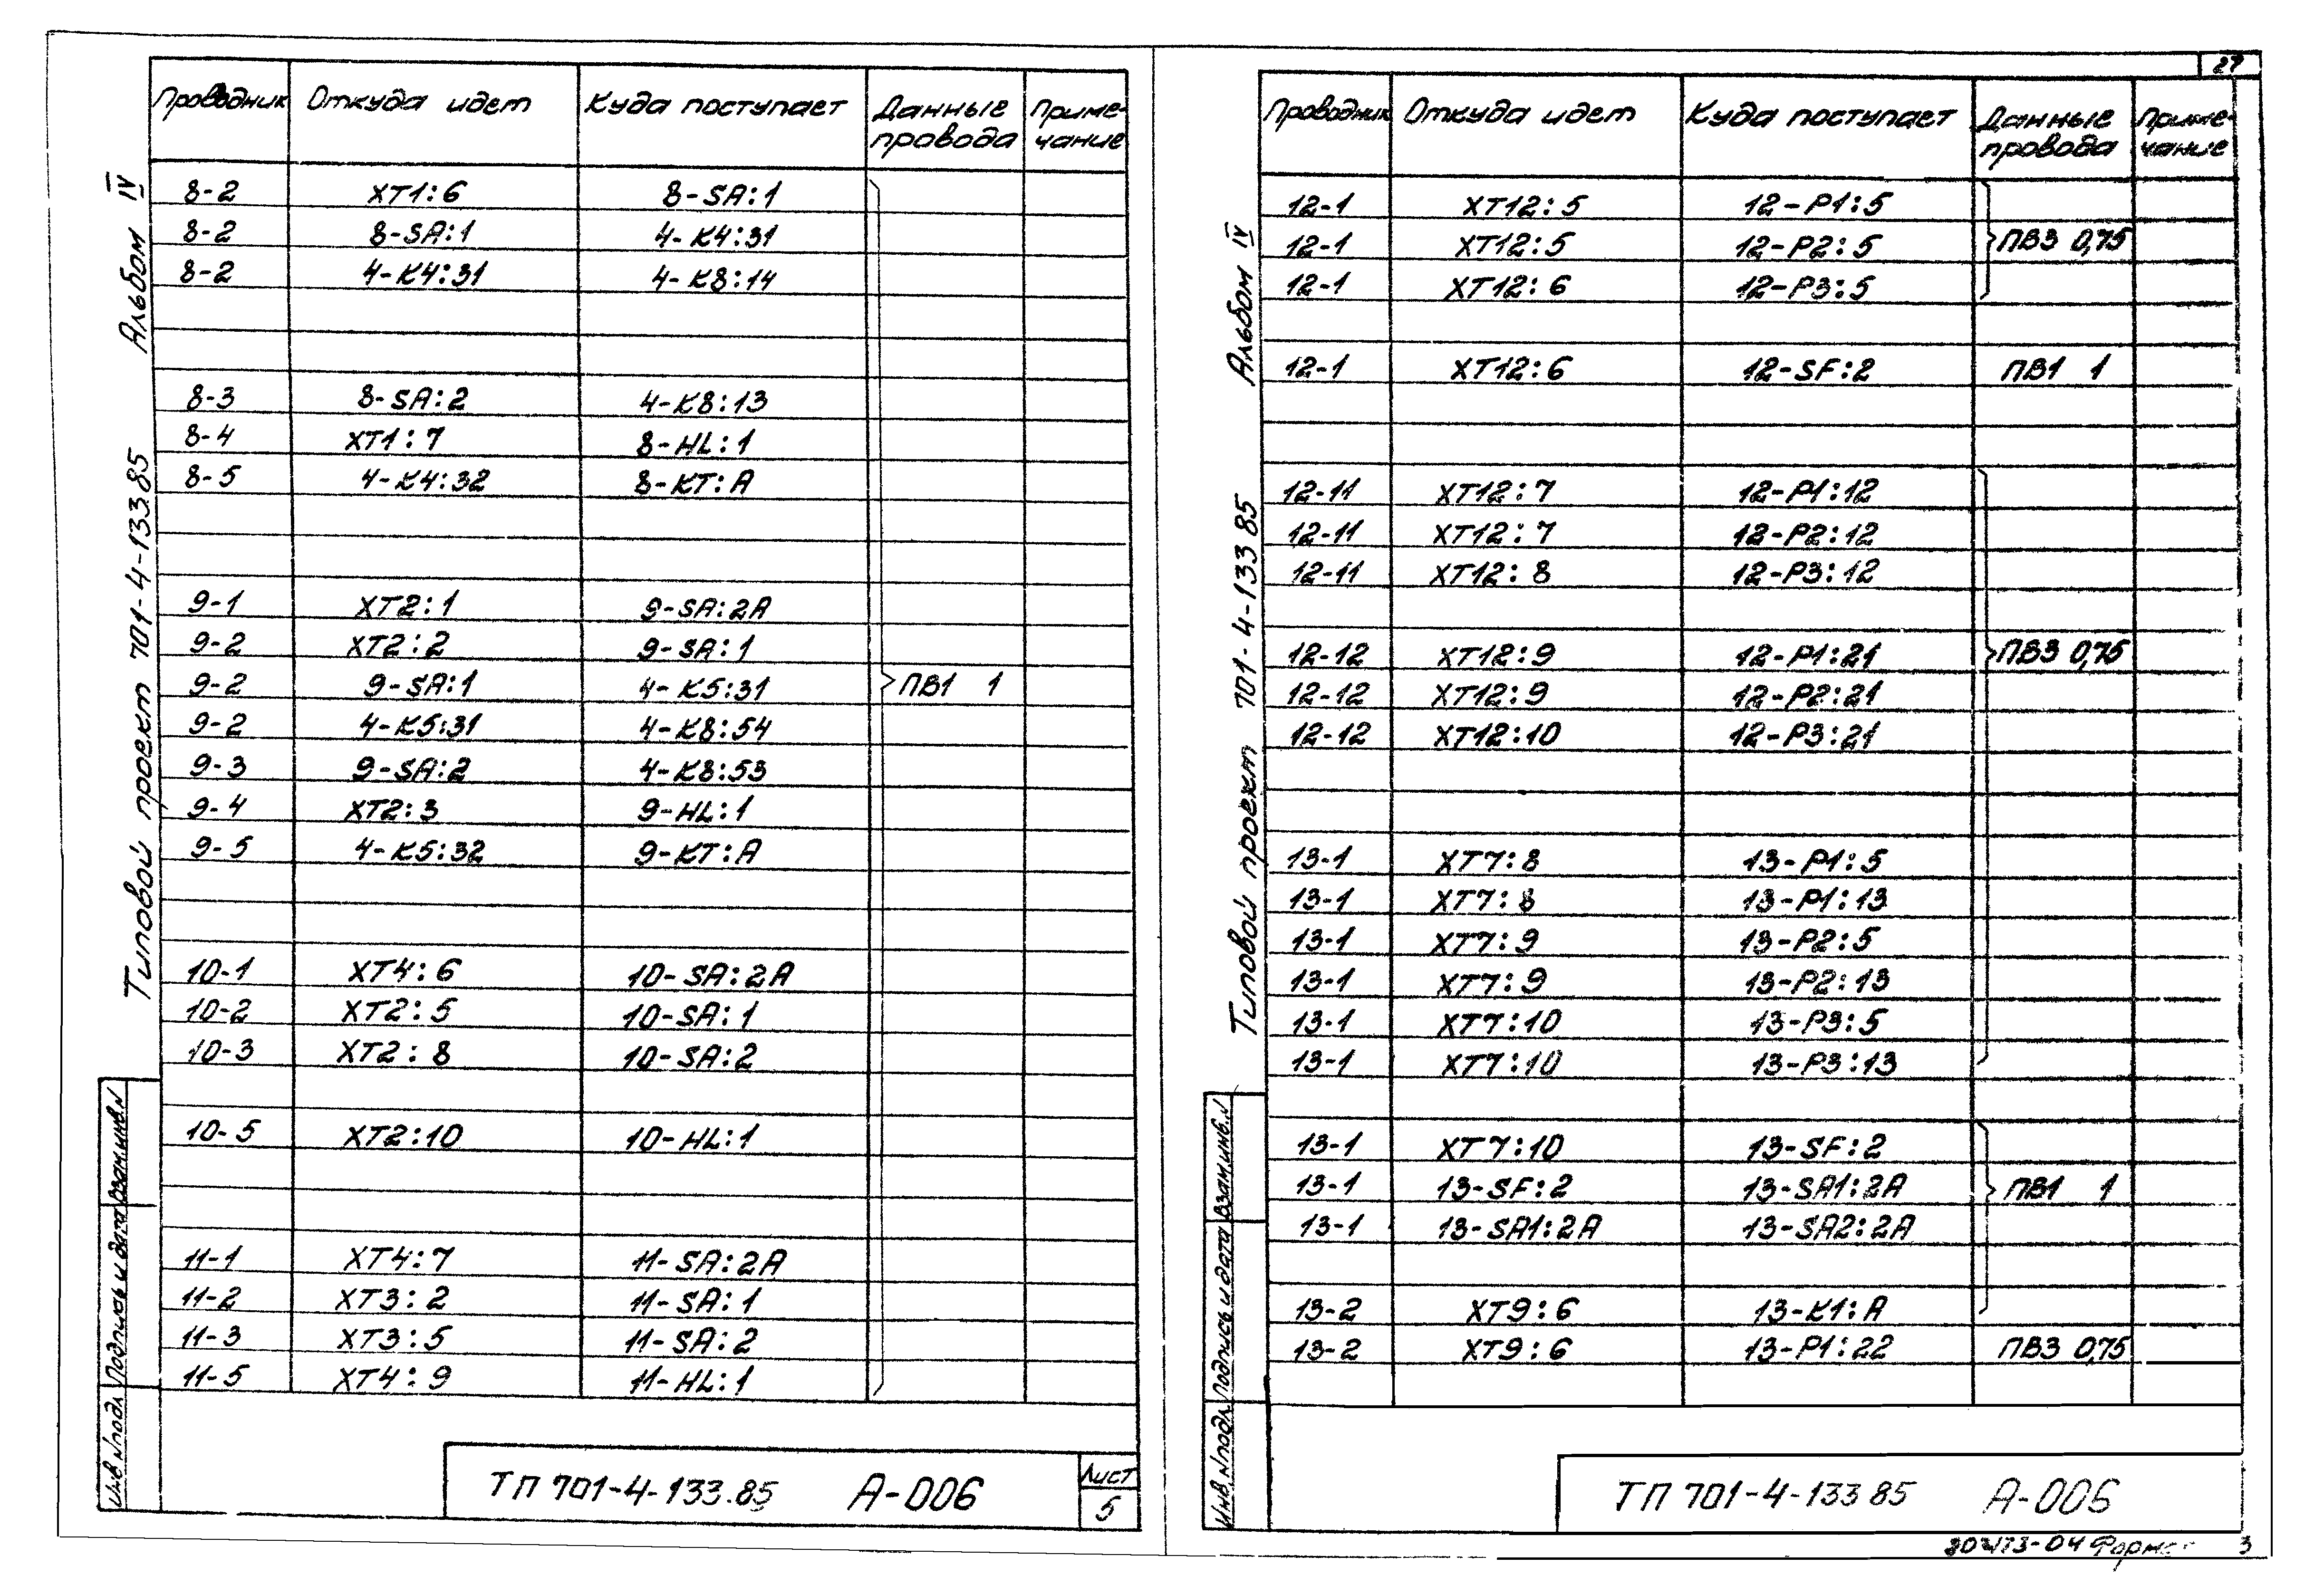 27
Альбом IV
Типовой проект 701-4-133 85
Взам.инв.N
Подпись и дата
Инв. N подл
Проводник Откуда идет Куда поступает Данные провода Приме-чание
8-2 XT1:6 8-SA:1
8-2 8-SA:1 4-K4:31
8-2 4-K4:31 4-K8:14
8-3 8-SA:2 4-K8:13
8-4 XT1:7 8-HL:1
8-5 4-K4:32 8-KT:A
9-1 XT2:1 9-SA:2A
9-2 XT2:2 9-SA:1
9-2 9-SA:1 4-K5:31 ПВ1 1
9-2 4-K5:31 4-K8:54
9-3 9-SA:2 4-K8:53
9-4 XT2:3 9-HL:1
9-5 4-K5:32 9-KT:A
10-1 XT4:6 10-SA:2A
10-2 XT2:5 10-SA:1
10-3 XT2:8 10-SA:2
10-5 XT2:10 10-HL:1
11-1 XT4:7 11-SA:2A
11-2 XT3:2 11-SA:1
11-3 XT3:5 11-SA:2
11-5 XT4:9 11-HL:1
ТП 701-4-133.85 А-006
Лист
5
Альбом IV
Типовой проект 701-4-133 85
Взам.инв.N
Подпись и дата
Инв. N подл.
Проводник Откуда идет Куда поступает Данные провода Приме-чание
12-1 XT12:5 12-P1:5
12-1 XT12:5 12-P2:5 ПВ3 0,75
12-1 XT12:6 12-P3:5
12-1 XT12:6 12-SF:2 ПВ1 1
12-11 XT12:7 12-P1:12
12-11 XT12:7 12-P2:12
12-11 XT12:8 12-P3:12
12-12 XT12:9 12-P1:21 ПВ3 0,75
12-12 XT12:9 12-P2:21
12-12 XT12:10 12-P3:21
13-1 XT7:8 13-P1:5
13-1 XT7:8 13-P1:13
13-1 XT7:9 13-P2:5
13-1 XT7:9 13-P2:13
13-1 XT7:10 13-P3:5
13-1 XT7:10 13-P3:13
13-1 XT7:10 13-SF:2
13-1 13-SF:2 13-SA1:2A ПВ1 1
13-1 13-SA1:2A 13-SA2:2A
13-2 XT9:6 13-K1:A
13-2 XT9:6 13-P1:22 ПВ3 0,75
ТП 701-4-133 85 А-006
3